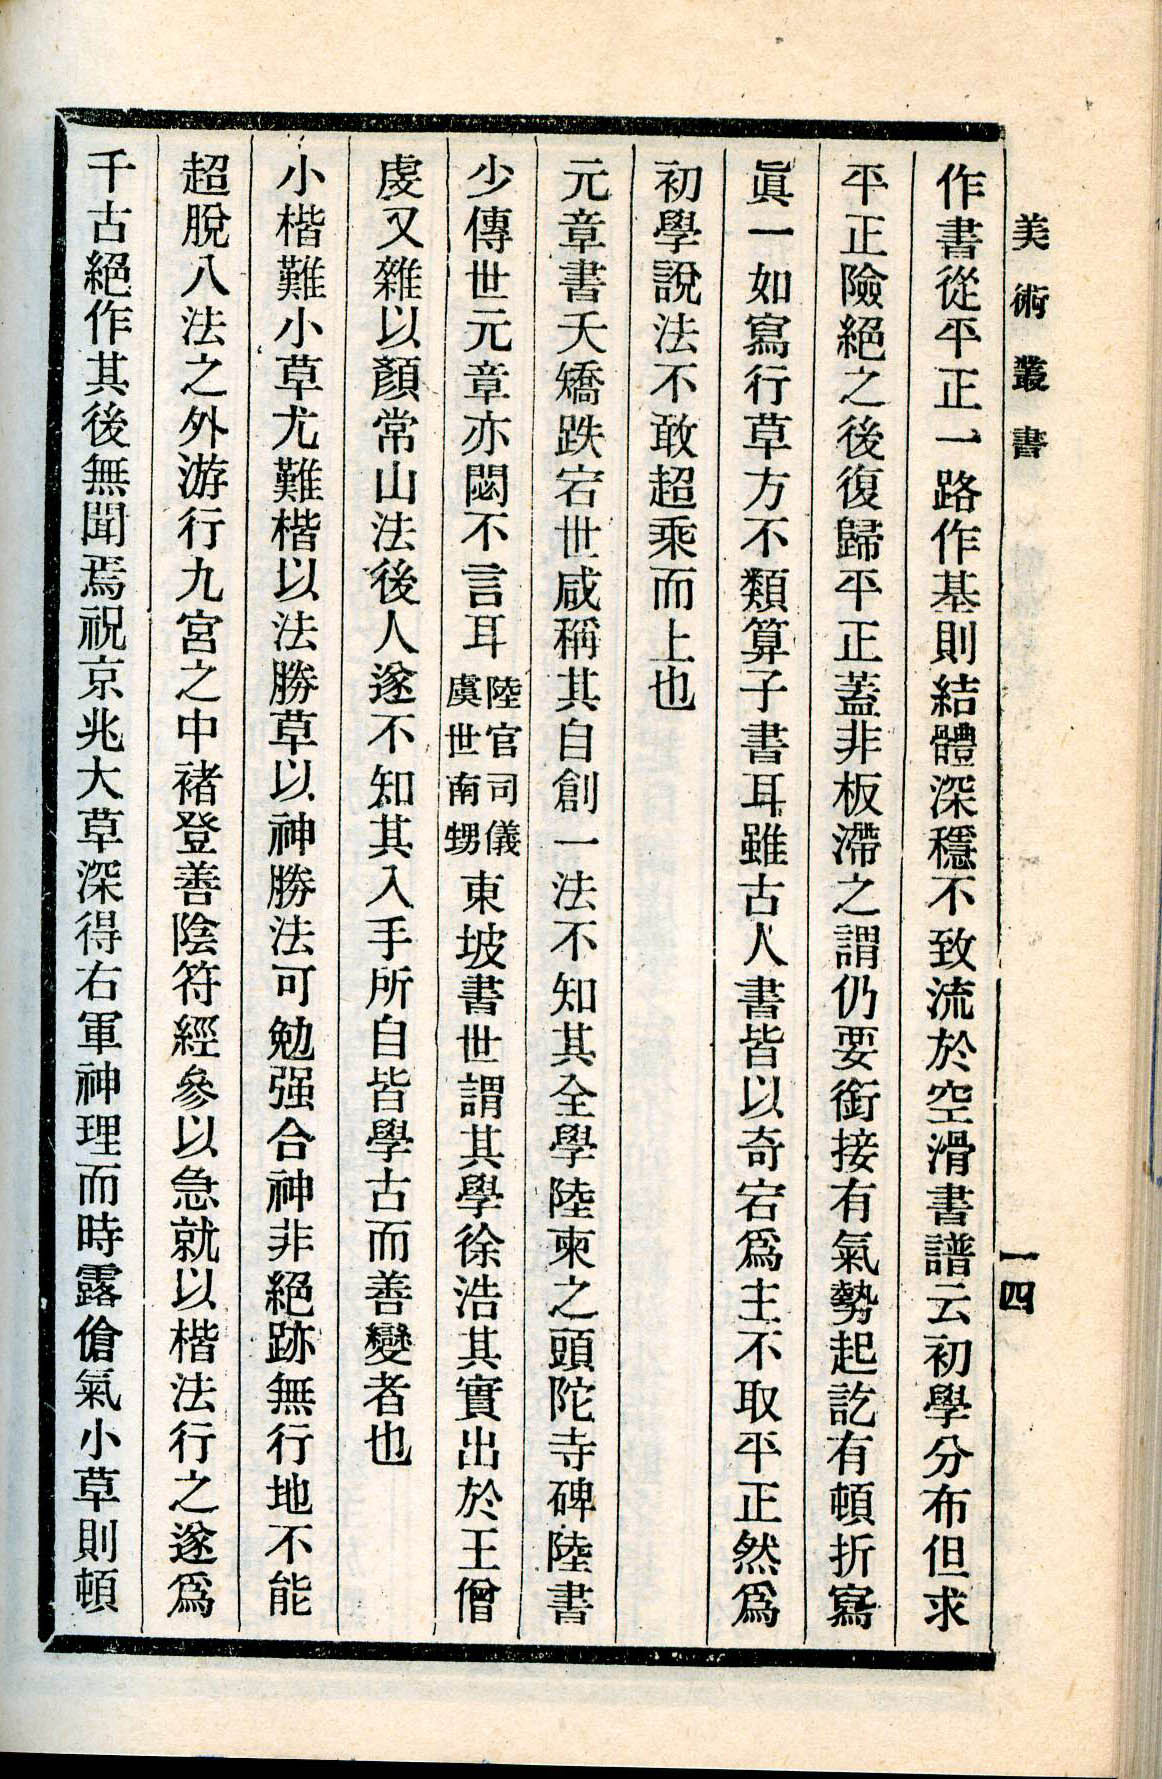 美術叢書
一四
作書從平正一路作基則結體深穩不致流於空滑書譜云初學分布但求
平正險絕之後復歸平正蓋非板滯之謂仍要銜接有氣勢起訖有頓折寫
眞一如寫行草方不類算子書耳雖古人書皆以奇宕爲主不取平正然爲
初學說法不敢超乘而上也
元章書夭矯跌宕世咸稱其自創一法不知其全學陸柬之頭陀寺碑陸書
少傳世元章亦閟不言耳陸官司儀虞世南甥東坡書世謂其學徐浩其實出於王僧
虔又雜以顏常山法後人遂不知其入手所自皆學古而善變者也
小楷難小草尤難楷以法勝草以神勝法可勉强合神非絕跡無行地不能
超脫八法之外游行九宮之中褚登善陰符經參以急就以楷法行之遂爲
千古絕作其後無聞焉祝京兆大草深得右軍神理而時露傖氣小草則頓